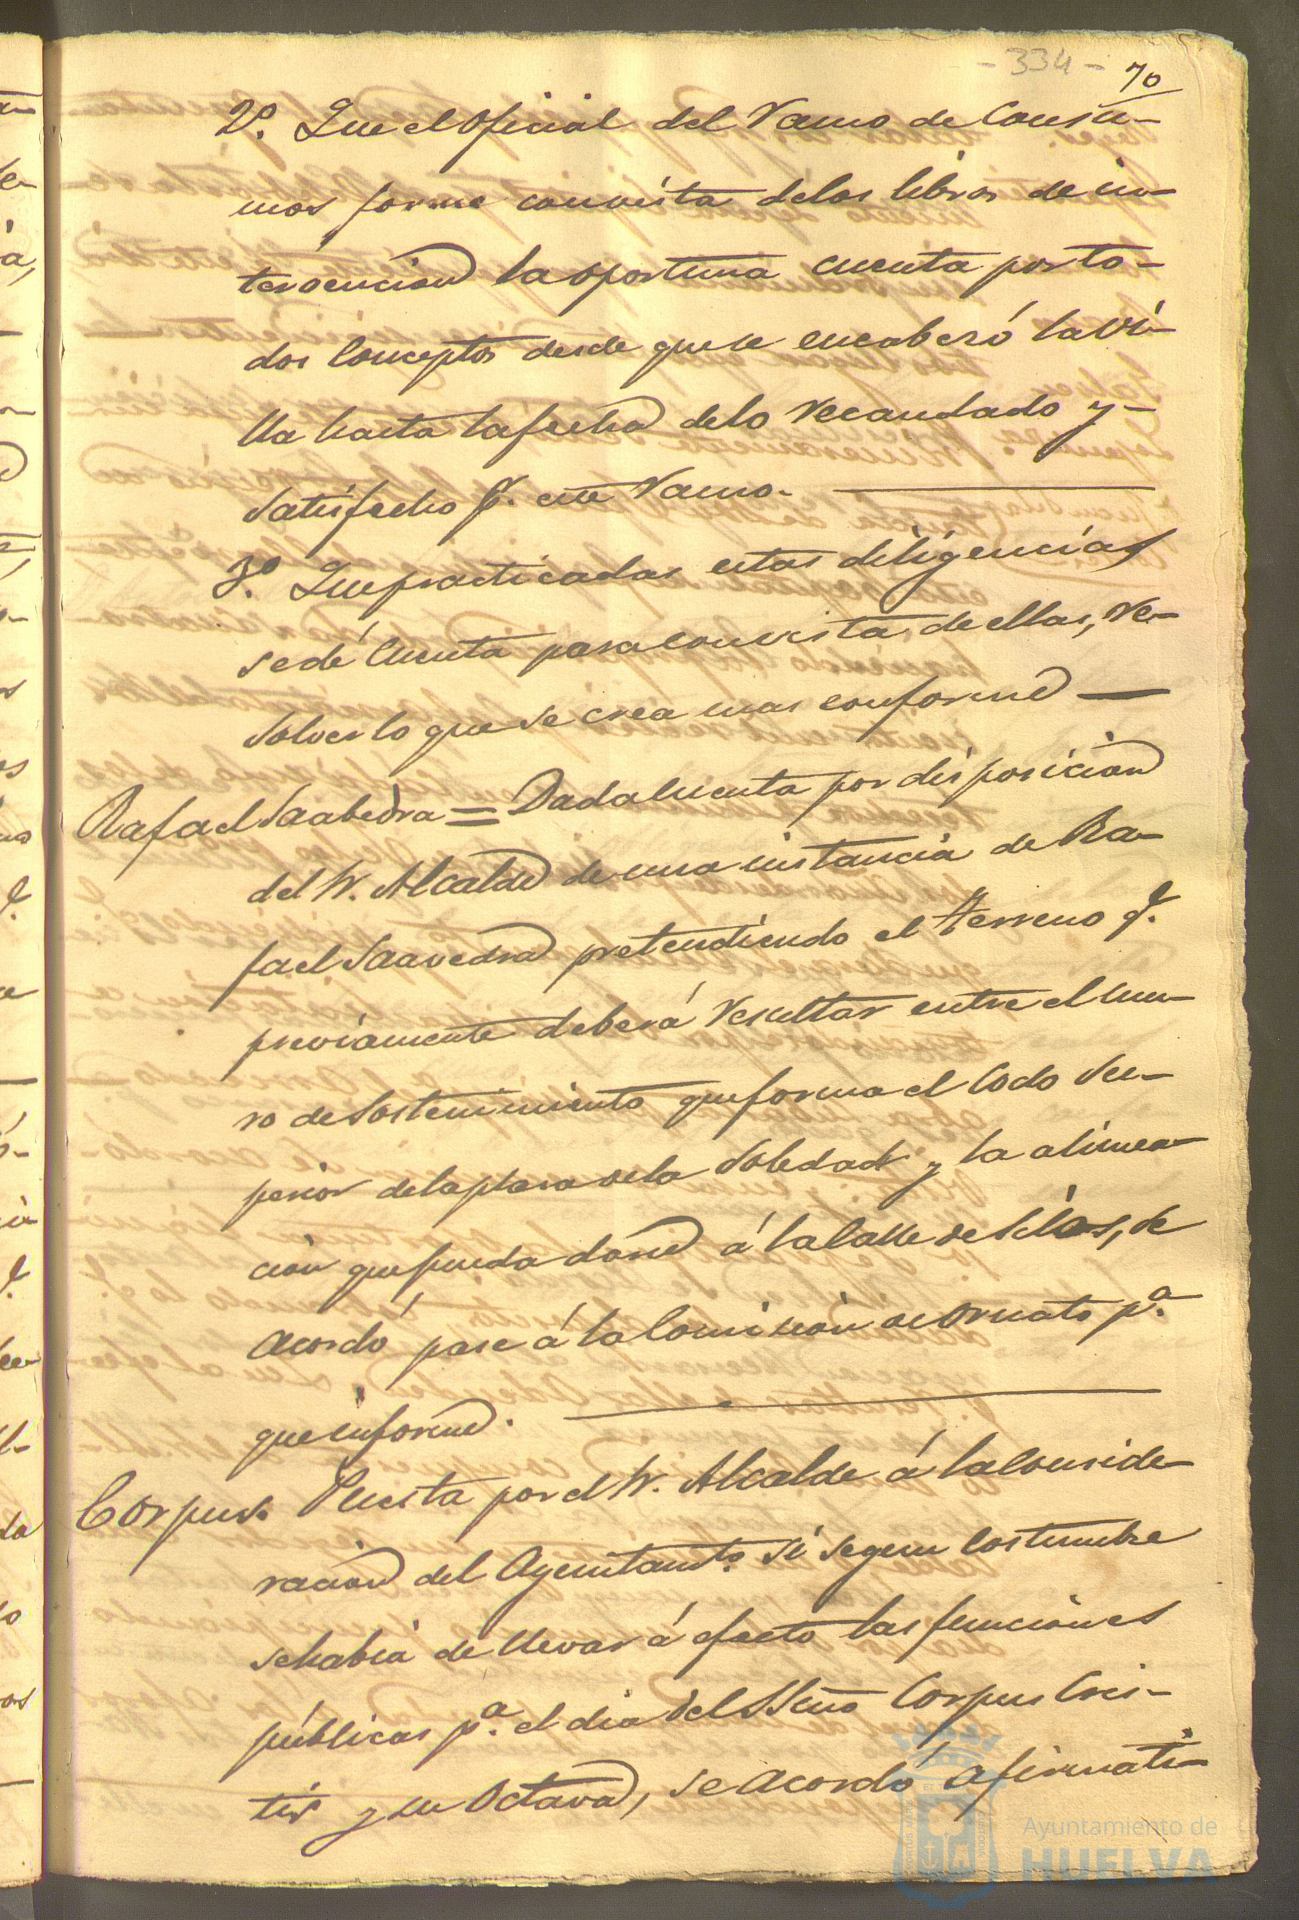 - 334 -
70
2º. Que el oficial del Ramo de Consu-
mos forme con vista de los libros de in-
tervencion la oportuna cuenta por to-
dos conceptos desde que se encabezó la Vi-
lla hasta la fecha de lo recaudado y-
satisfecho pr. este Ramo.
3º. Que practicadas estas diligencias
se dé cuenta para con vista de ellas, re-
solver lo que se crea mas conforme
Rafael Saabedra = Dada cuenta por disposicion
del Sr. Alcalde de una instancia de Ra-
fael Saavedra pretendiendo el terreno qe.
previamente deberá resultar entre el mu-
ro de sostenimiento que forma el Codo Su-
perior de la plaza de la Soledad y la alinea-
ción que pueda darse á la Calle de Silos, se
acordó pase á la Comision de Ornato pª.
que informe.
Corpus. Puesta por el Sr. Alcalde á la conside-
racion del Ayuntamto. si segun costumbre
se habia de llevar á efecto las funciones
públicas pª. el dia del SSmo Corpus Cris-
tis y su Octava, se acordó afirmati-
Ayuntamiento de
HUELVA